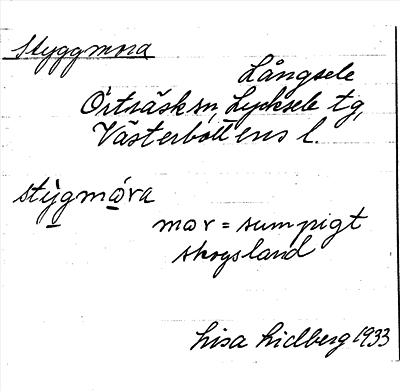 Styggmora
Långsele
Örträsk sn, Lycksele tg,
Västerbottens l.
stỳgmɷ́ra
mɷr = sumpigt
skogsland
Lisa Lidberg 1933